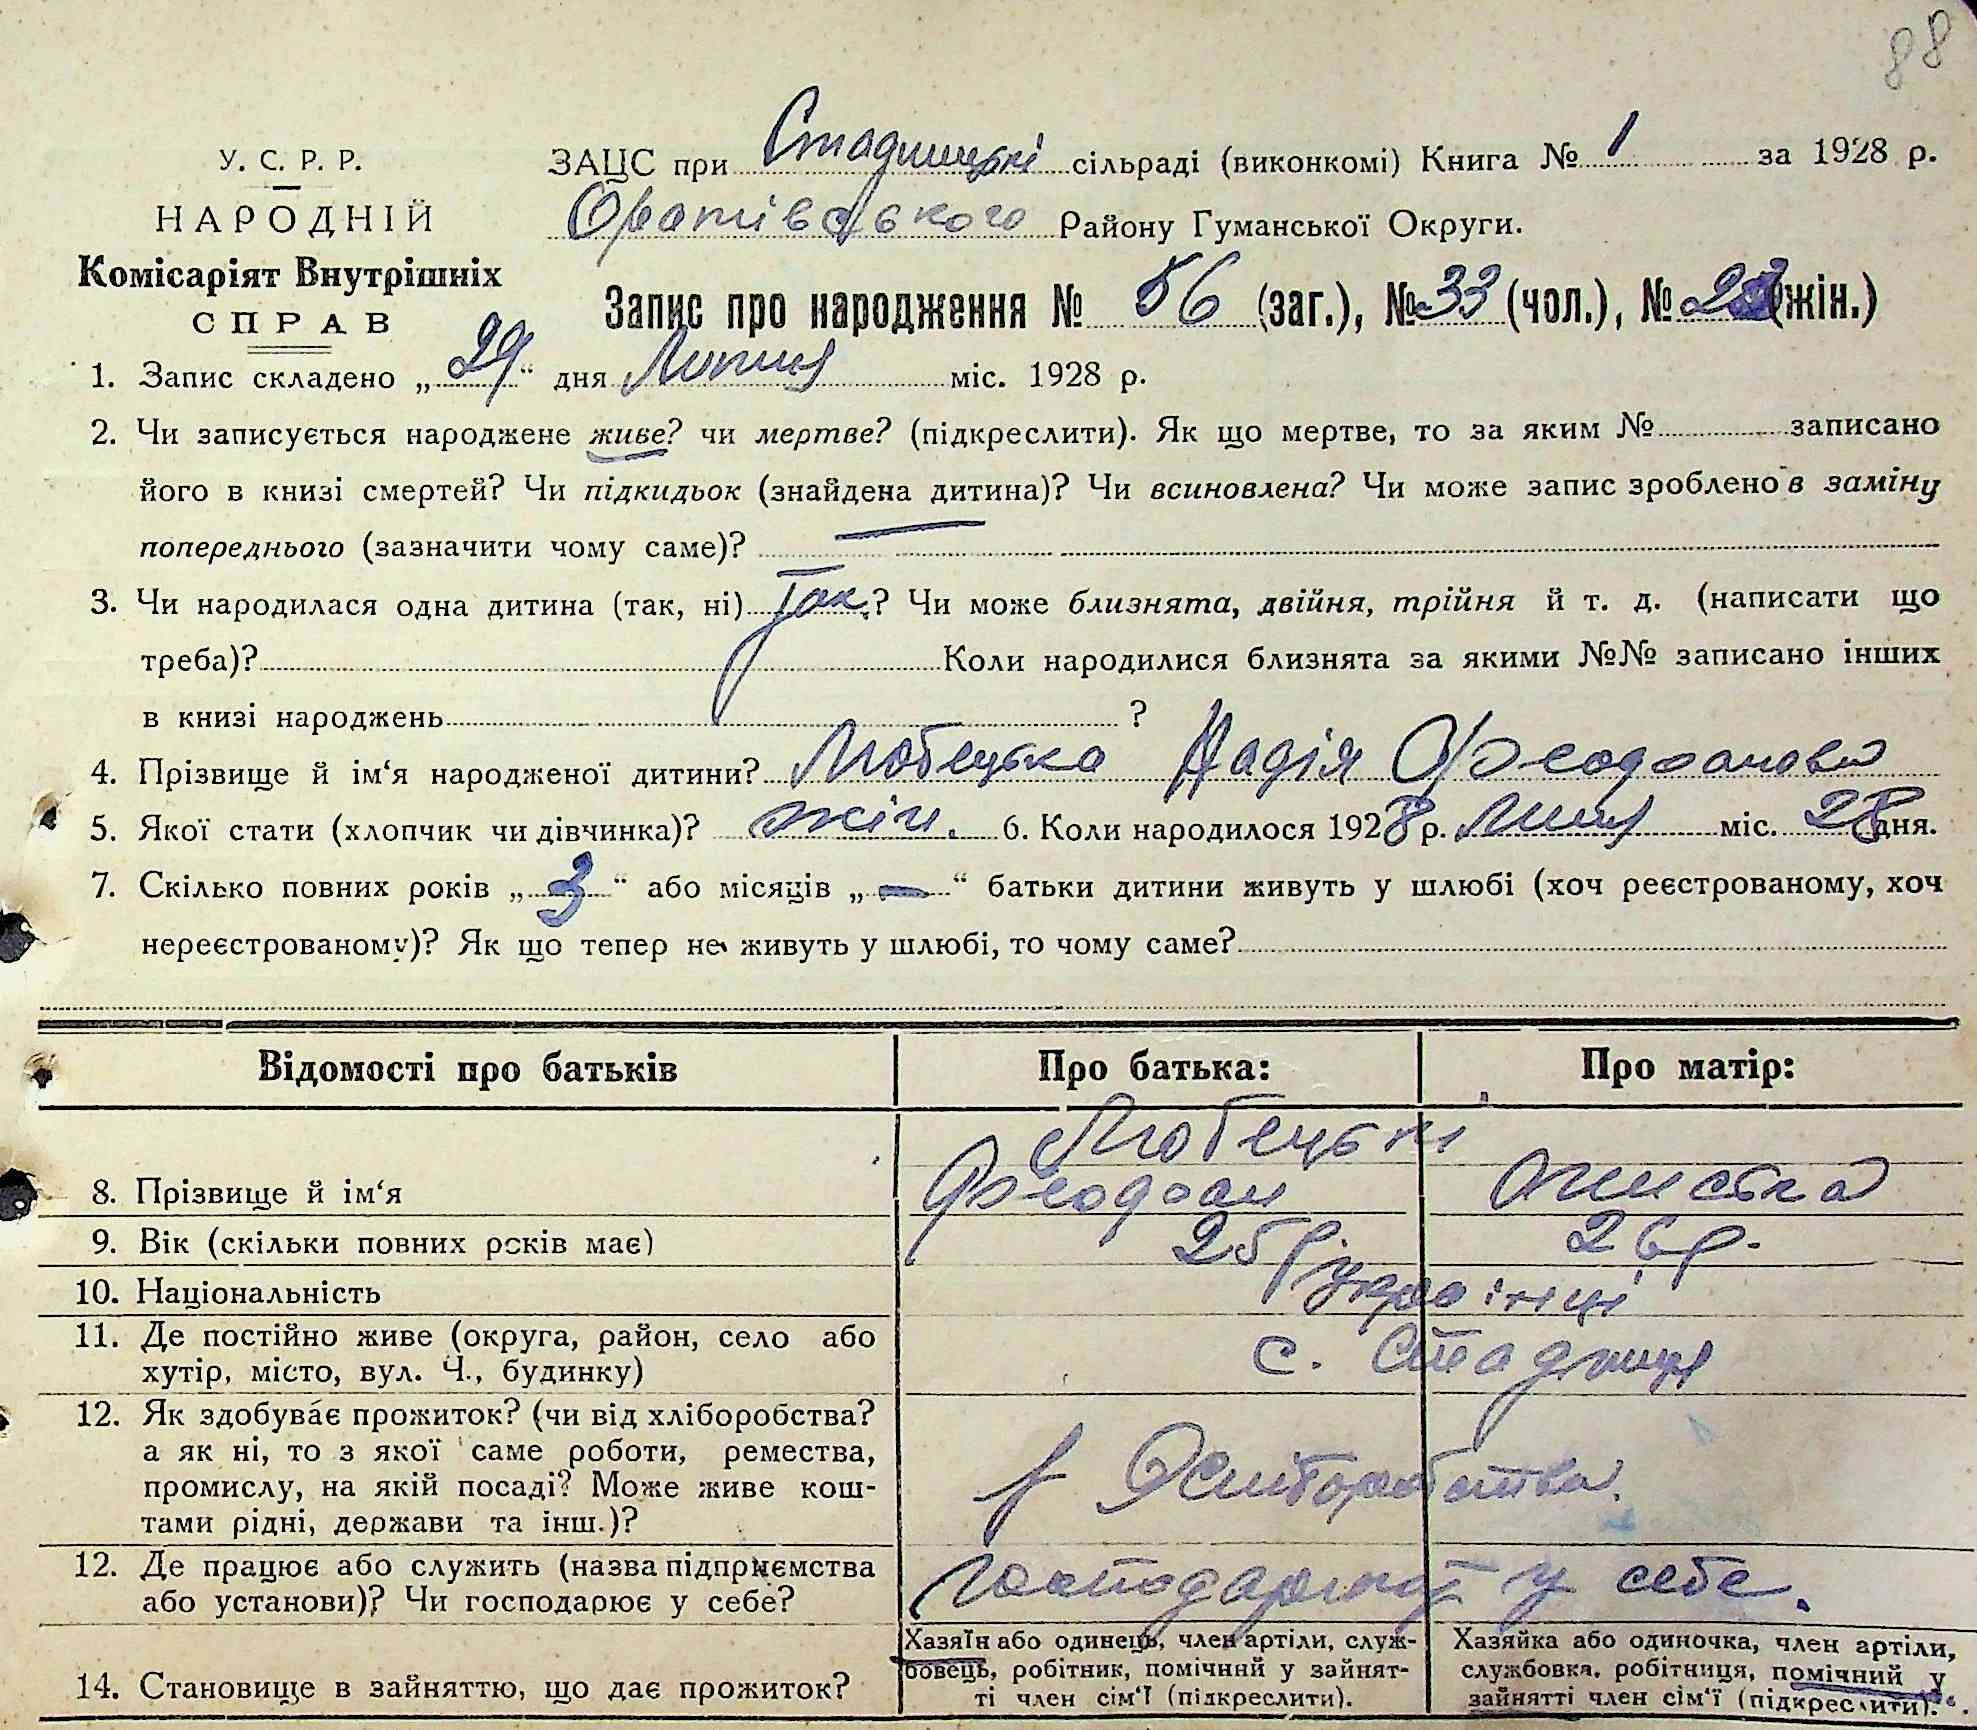 88
У. С. Р. Р.
НАРОДНІЙ
Комісаріят Внутрішніх
СПРАВ
ЗАЦС при Стадницькі сільраді (виконкомі) Книга № 1 за 1928 р.
Оратівського Району Гуманської Округи.
Запис про народження № 56 (заг.), № 33 (чол.), № 23 (жін.)
1. Запис складено „29“ дня Липня міс. 1928 р.
2. Чи записується народжене живе? чи мертве? (підкреслити). Як що мертве, то за яким № записано
його в книзі смертей? Чи підкидьок (знайдена дитина)? Чи всиновлена? Чи може запис зроблено в заміну
попереднього (зазначити чому саме)?
3. Чи народилася одна дитина (так, ні) Так? Чи може близнята, двійня, трійня й т. д. (написати що
треба)? Коли народилися близнята за якими №№ записано інших
в книзі народжень ?
4. Прізвище й ім‘я народженої дитини? Любецька Надія
5. Якої стати (хлопчик чи дівчинка)? жін. 6. Коли народилося 1928 р. Липня міс. 28 дня.
7. Скілько повних років „3“ або місяців „—“ батьки дитини живуть у шлюбі (хоч реєстрованому, хоч
нереєстрованому)? Як що тепер не живуть у шлюбі, то чому саме?
Відомості про батьків Про батька: Про матір:
Любецькі
8. Прізвище й ім‘я Феодосій
9. Вік (скільки повних років має) 25 р. 26 р.
10. Національність українці
11. Де постійно живе (округа, район, село або
хутір, місто, вул. Ч., будинку) с. Стадниця
12. Як здобуває прожиток? (чи від хліборобства?
а як ні, то з якої саме роботи, ремества,
промислу, на якій посаді? Може живе кош-
тами рідні, держави та інш.)? з Хліборобства.
12. Де працює або служить (назва підприємства
або установи)? Чи господарює у себе? господарюют у себе.
14. Становище в зайняттю, що дає прожиток?
Хазяїн або одинець, член артіли, служ-
бовець, робітник, помічний у зайнят-
ті член сім‘ї (підкреслити).
Хазяйка або одиночка, член артіли,
службовка, робітниця, помічний у
зайнятті член сім‘ї (підкреслити).